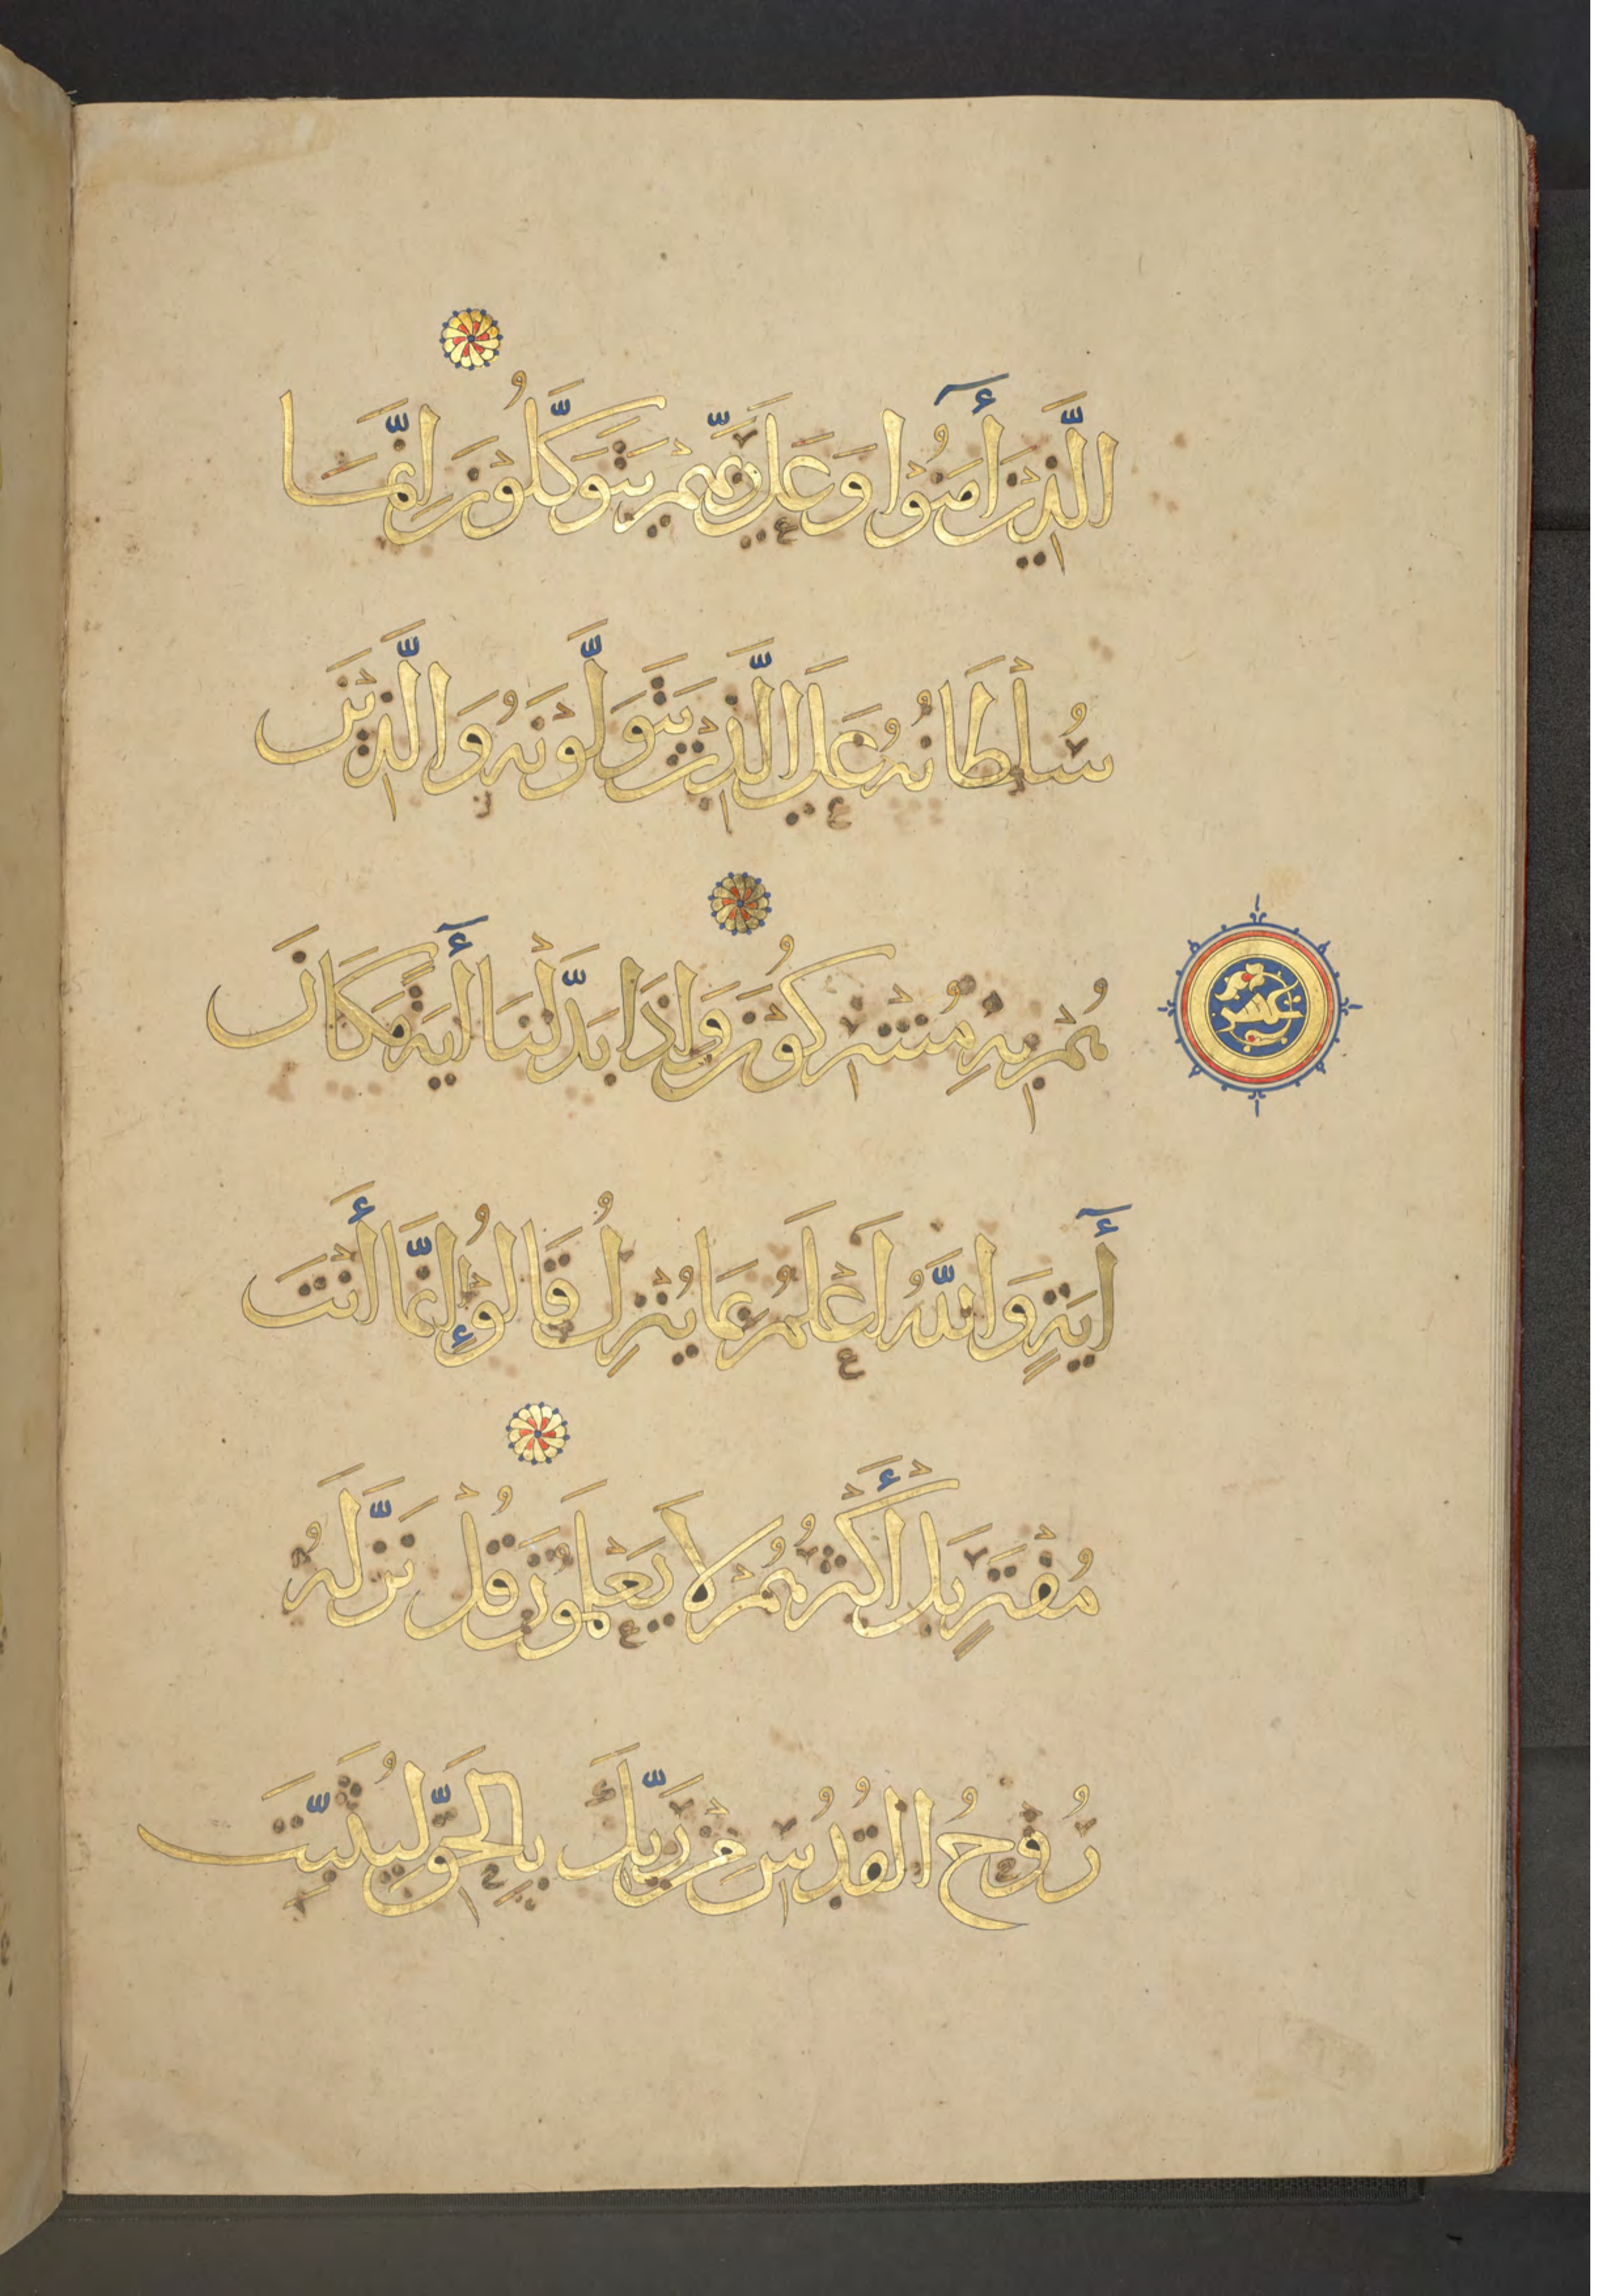 الَّذِينَ أٓمَنُوا وَعَلَى رَبِّهِمْ يَتَوَكَّلُونَ اِنَّمَا
سُلْطَانُهُ عَلَى الَّذِينَ يَتَوَلَّوْنَهُ وَالَّذِينَ
هُمْ بِهِ مُشْرِكُونَ وَاِذَا بَدَّلْنَا أٓيَةً مَكَانَ
أٓيَةٍ وَاللَّهُ اَعْلَمُ بِمَا يُنْزِلُ قَالُوْا إِنَّمَا أَنْتَ
مُفْتَرٍ بَلْ أَكْثَرُهُمْ لَا يَعْلَمُونَ قُلْ نَزَّلَهُ
رُوْحُ الْقُدُسِ مِنْ رَبِّكَ بِالْحَقِّ لِيُثَبِّتَ
عشر